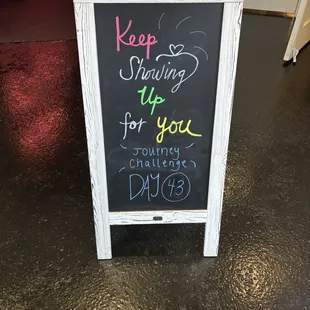 Keep
Showing
Up
for you
Journey
Challenge
DAY 43